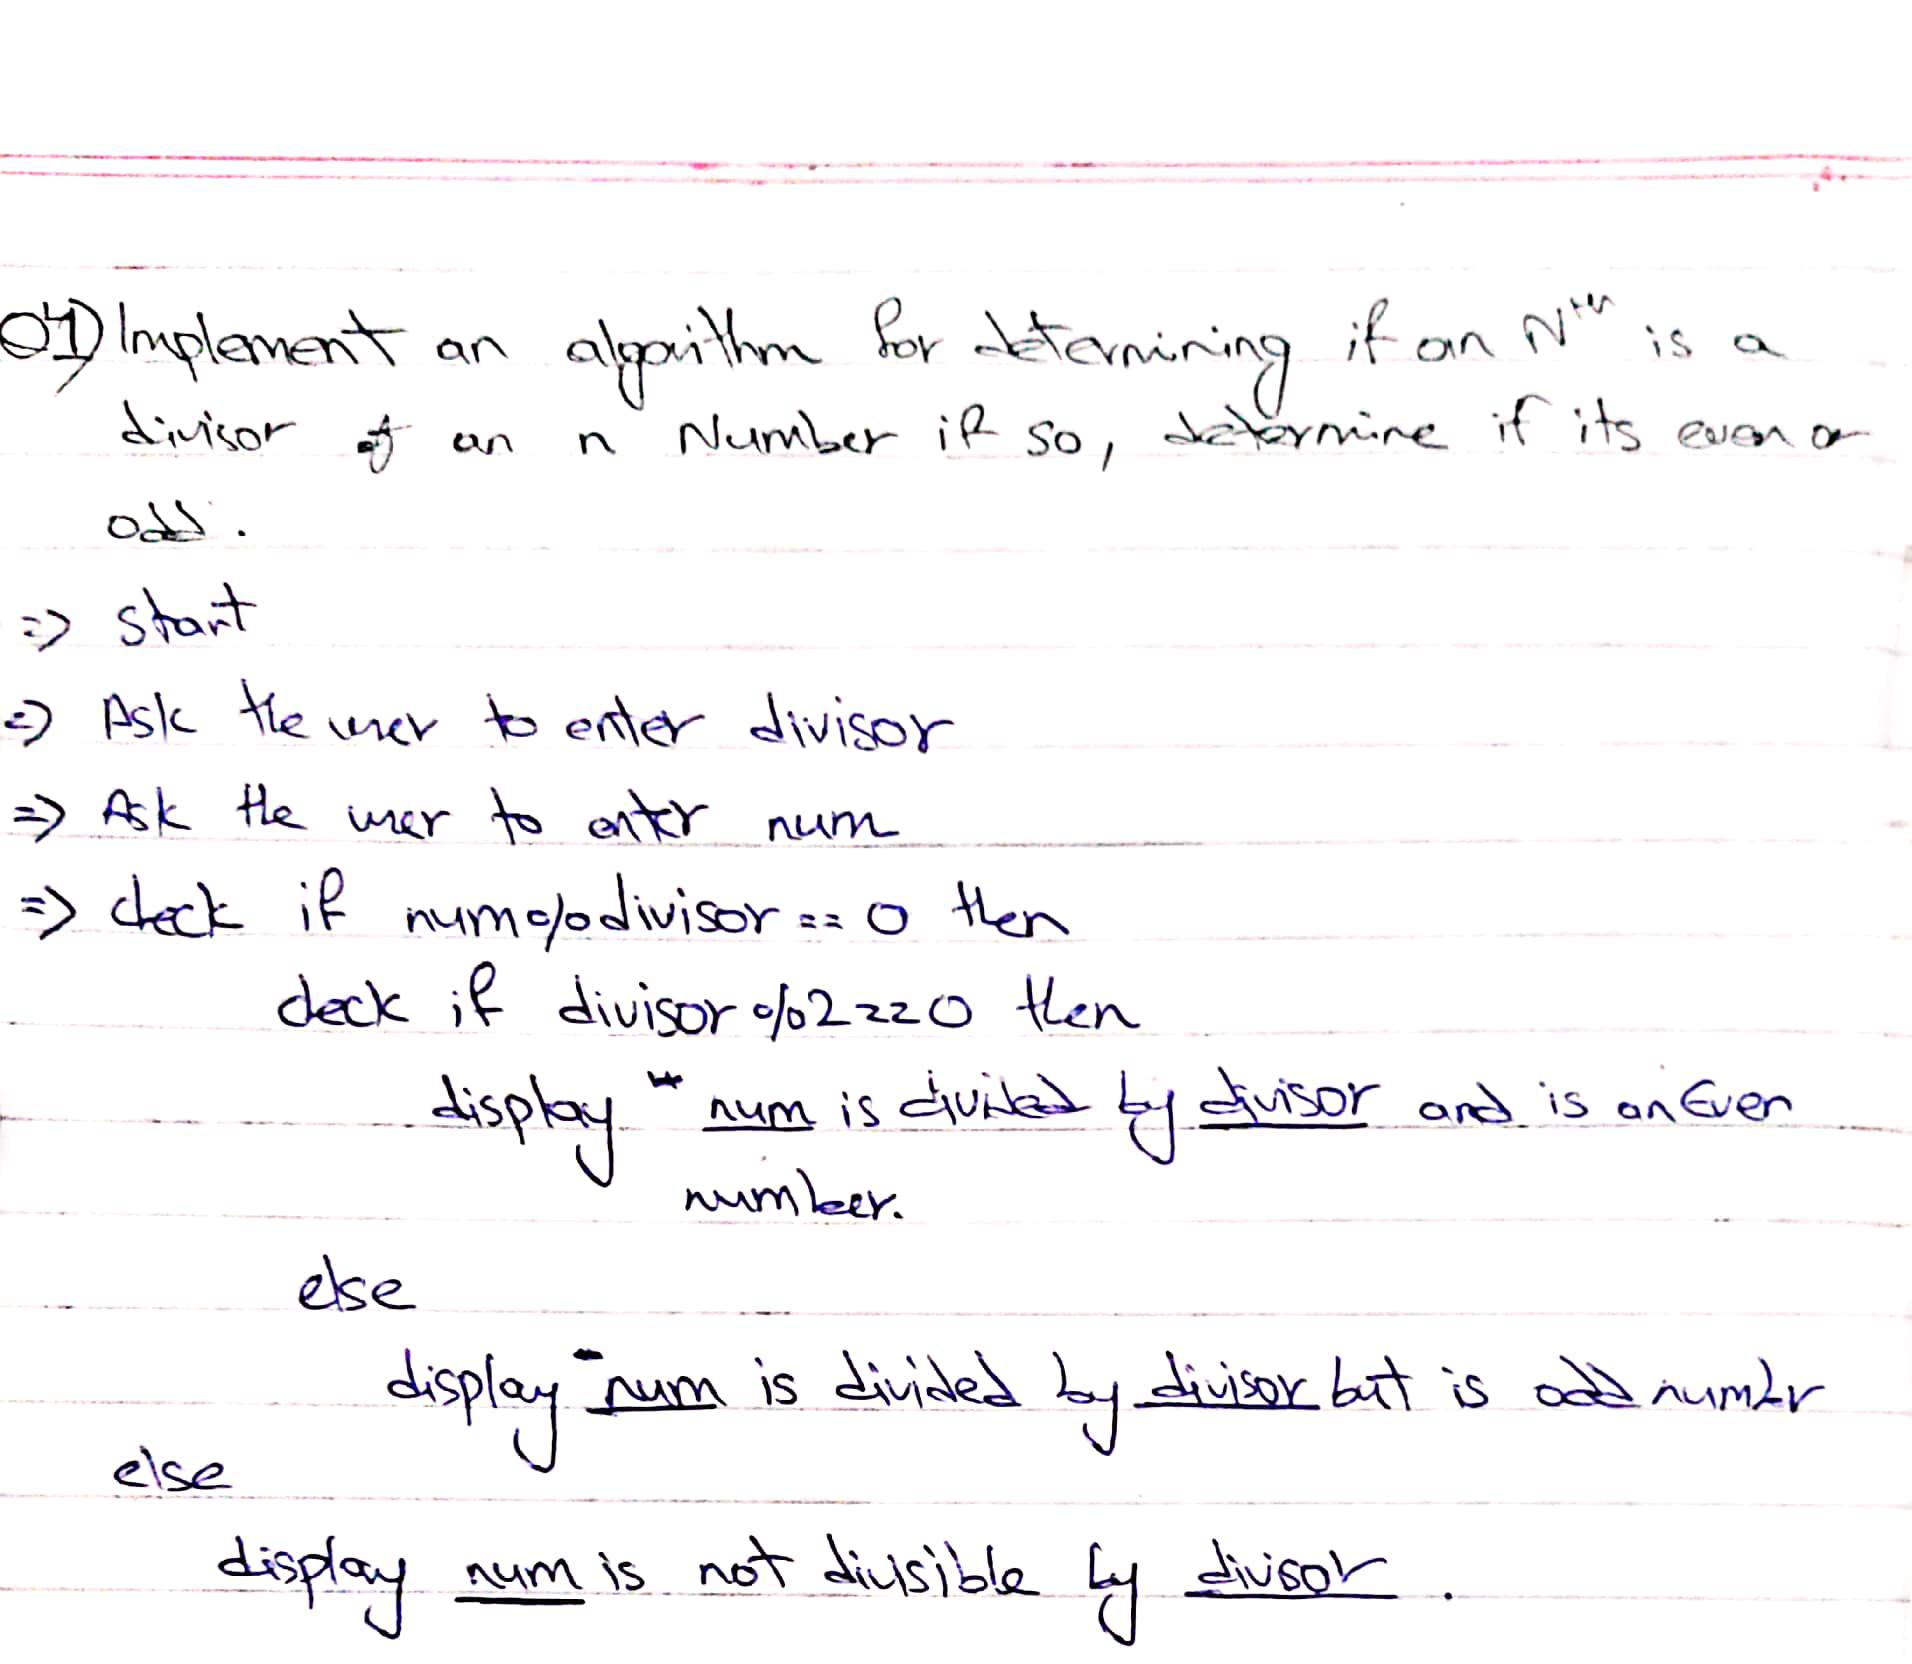 Q1) Implement an algorithm for determining if an Nth is a
divisor of an n Number if so, determine if its even or
odd.
=> start
=> Ask the user to enter divisor
=> Ask the user to enter num
=> check if num % divisor == 0 then
check if divisor % 2 == 0 then
display " num is divided by divisor and is an Even
number.
else
display "num is divided by divisor but is odd number
else
display num is not divisible by divisor.